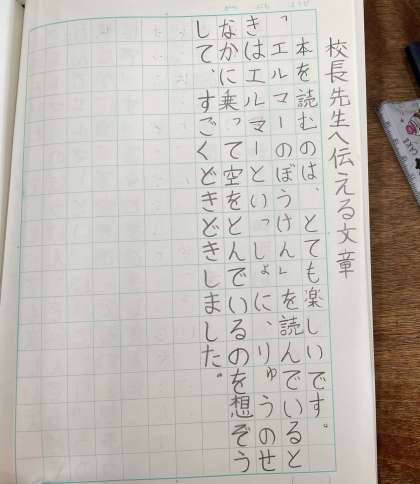 校長先生へ伝える文章
本を読むのは、とても楽しいです。
「エルマーのぼうけん」を読んでいると
きはエルマーといっしょに、りゅうのせ
なかに乗って空をとんでいるのを想ぞう
して、すごくどきどきしました。